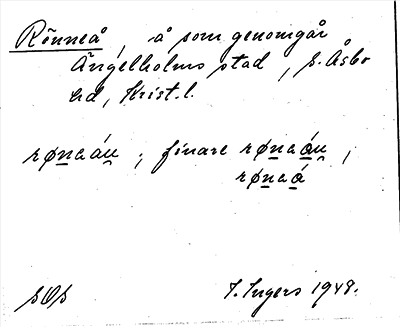 Rönneå, å som genomgår
Ängelholms stad, S. Åsbo
hd, Krist. l.
røneáu; finare røneáu,
røneá
SOS
I. Ingers 1948.